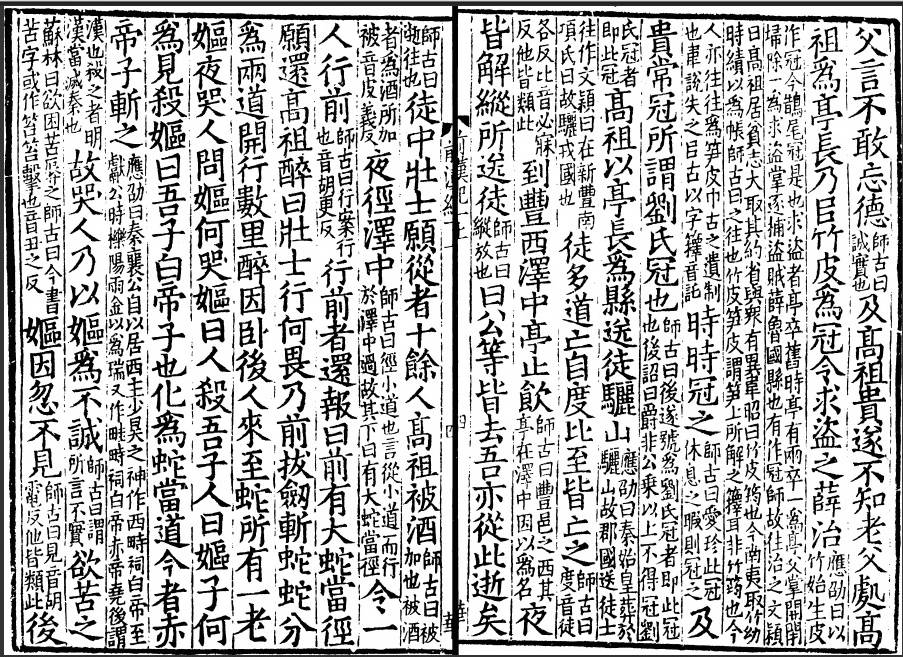 父言不敢忘德師古曰誠實也及高祖貴遂不知老父處高
祖爲亭長乃㠯竹皮爲冠令求盜之薛治應劭曰以竹始生皮
作冠今鵲尾冠是也求盜者亭卒舊時亭有兩卒一爲亭父掌開閉掃除一爲求盜掌逐捕盜賊薛魯國縣也有作冠師故往治之文穎
曰高祖居貧志大取其約省與衆有異韋昭曰竹皮竹筠也今南夷取竹幼時績以爲帳師古曰之往也竹皮筍皮謂筍上所解之籜耳非竹筠也今
人亦往往爲筍皮巾古之遺制也韋說失之㠯古以字籜音託時時冠之師古曰愛珍此冠休息之暇則冠之及
貴常冠所謂劉氏冠也師古曰後遂號爲劉氏冠者即此冠也後詔曰爵非公乘以上不得冠劉
氏冠者即此冠高祖以亭長爲縣送徒驪山應劭曰秦始皇葬於驪山故郡國送徒士
往作文穎曰在新豐南項氏曰故驪戎國也徒多道亡自度比至皆亡之師古曰度音徒
各反比音必寐反他皆類此到豐西澤中亭止飲師古曰豐邑之西其亭在澤中因以爲名夜
皆解縱所送徒師古曰縱放也曰公等皆去吾亦從此逝矣
師古曰逝往也徒中壯士願從者十餘人高祖被酒師古曰被加也被酒
者爲酒所加被音皮義反夜徑澤中師古曰徑小道也言從小道而行於澤中過故其下曰有大蛇當徑令一
人行前師古曰行案行也音胡更反行前者還報曰前有大蛇當徑
願還高祖醉曰壯士行何畏乃前拔劍斬蛇蛇分
爲兩道開行數里醉因卧後人來至蛇所有一老
嫗夜哭人問嫗何哭嫗曰人殺吾子人曰嫗子何
爲見殺嫗曰吾子白帝子也化爲蛇當道今者赤
帝子斬之應劭曰秦襄公自以居西主少昊之神作西畤祠白帝至獻公時櫟陽雨金以爲瑞又作畦畤祠白帝赤帝堯後謂
漢也殺之者明漢當滅秦也故哭人乃以嫗爲不誠師古曰謂所言不實欲苦之
蘇林曰欲困苦辱之師古曰今書苦字或作笞笞擊也音丑之反嫗因忽不見師古曰見音胡電反他皆類此後